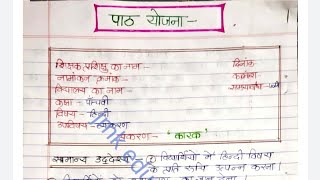 पाठ योजना -
शिक्षक/प्रशिक्षु का नाम - दिनांक
नामांकन क्रमांक - कालांश
विद्यालय का नाम -
कक्षा - पाँचवी
विषय - हिन्दी
उपविषय - व्याकरण
प्रकरण - "कारक"
सामान्य उद्देश्य ① विद्यार्थियों में हिन्दी विषय
के प्रति रुचि उत्पन्न करना।